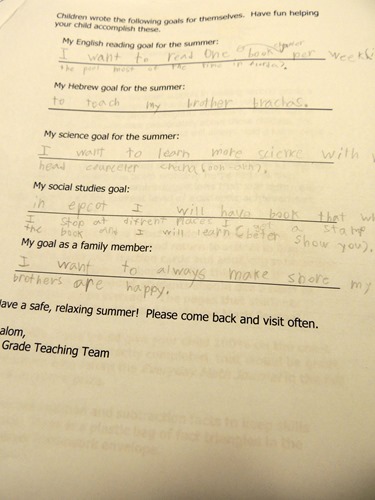 Children wrote the following goals for themselves. Have fun helping
your child accomplish these.
My English reading goal for the summer:
I want to read one book per week
the pool most of the time in
My Hebrew goal for the summer:
to teach my brother brachas.
My science goal for the summer:
I want to learn more science with
head
My social studies goal:
in epcot I will have book that
I stop at different places a stamp
the book and I will learn (beter show you).
My goal as a family member:
I want to always make shore my
brothers are happy.
ave a safe, relaxing summer! Please come back and visit often.
alom,
Grade Teaching Team